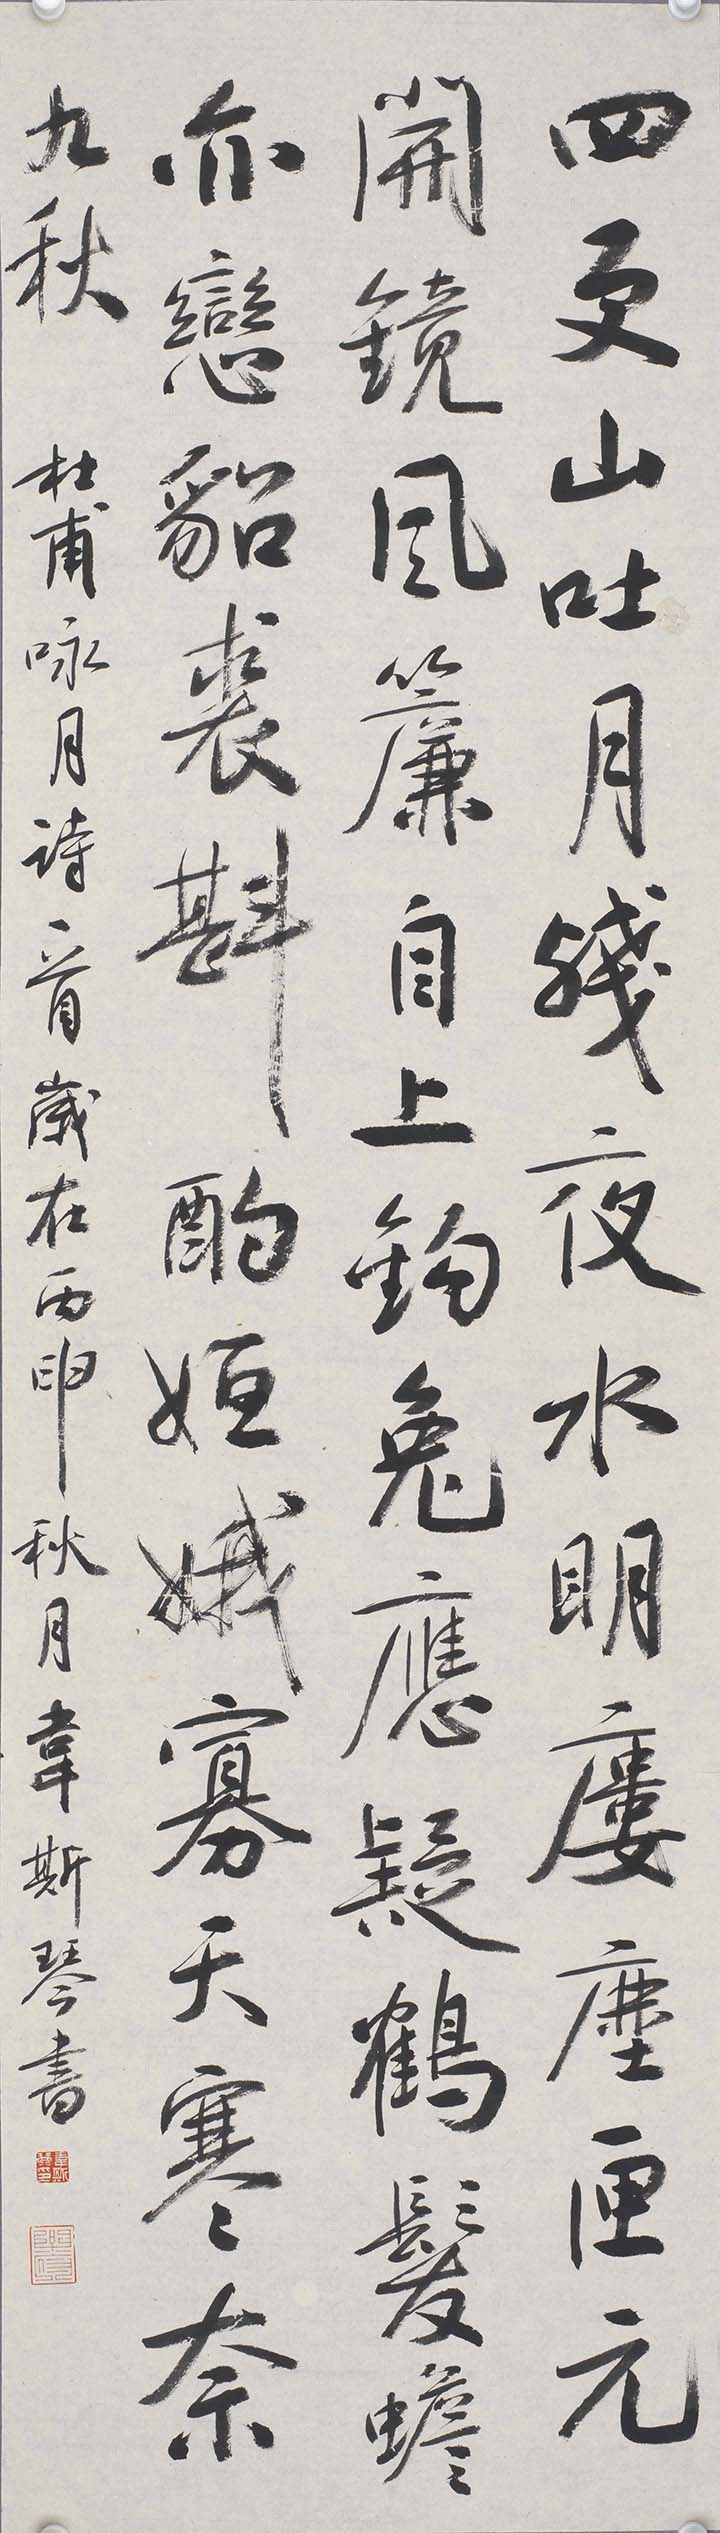 四更山吐月殘夜水明廔塵匣元
開鏡風簾自上鈎兔應疑鶴髮蟾
亦戀貂裘斟酌姮娥寡天寒奈
九秋
杜甫咏月詩一首歲在丙申秋月韋斯琴書